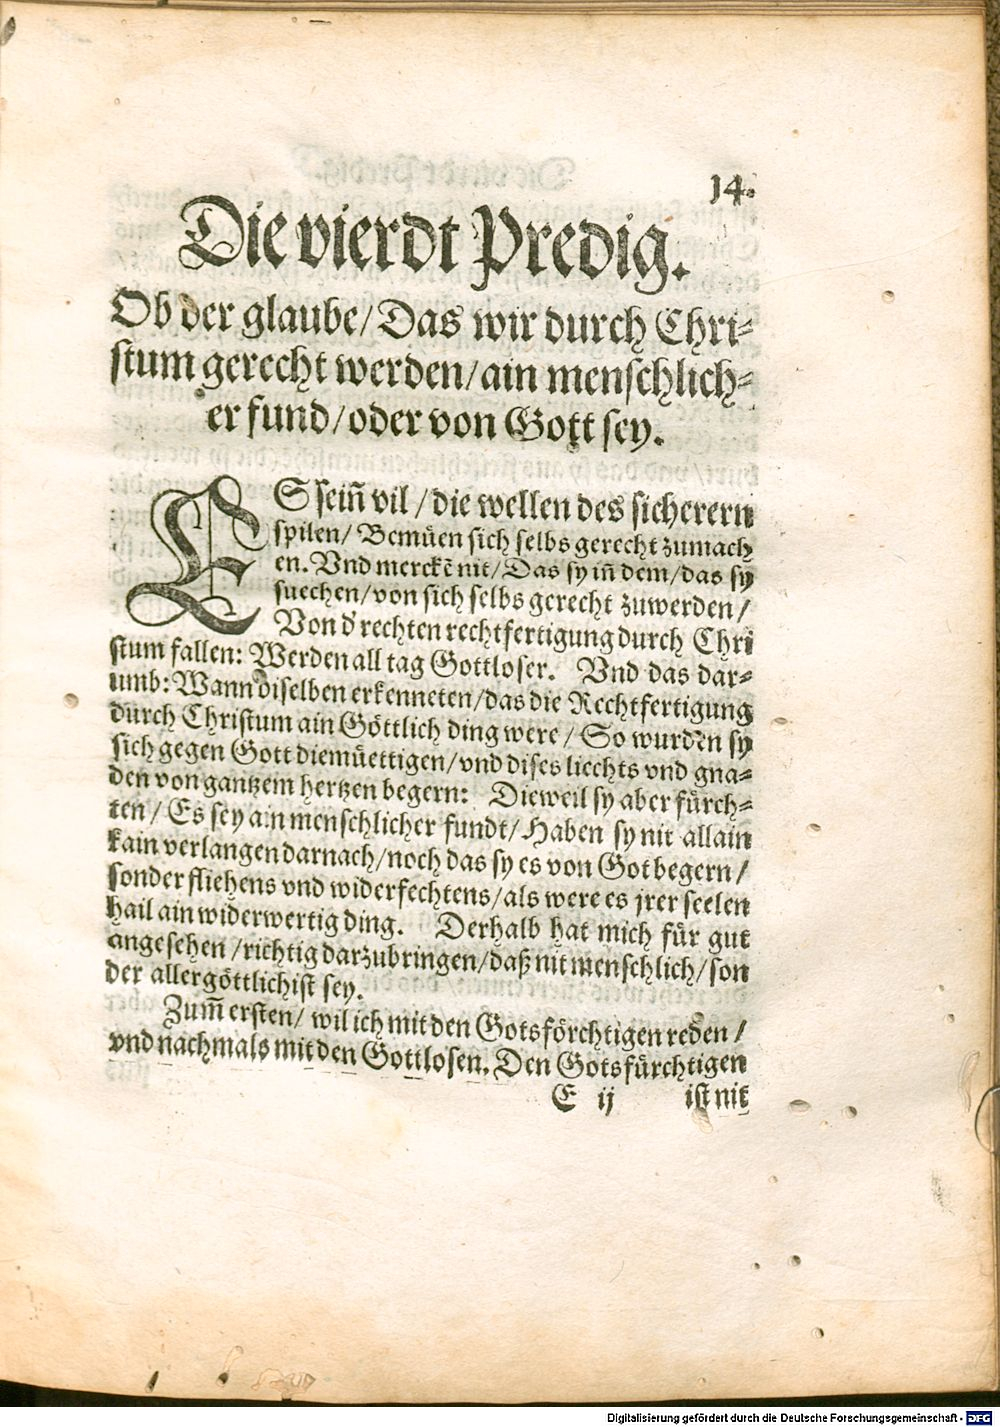 14.
Die vierdt Predig.
Ob der glaube/ Das wir durch Chri⸗
stum gerecht werden/ ain menschlich⸗
er fund/ oder von Gott sey.
ES sein̄ vil / die wellen des sicherern
spilen/ Bemüen sich selbs gerecht zumach
en. Vnd merckē nit/ Das sy in̄ dem/ das sy
suechen/ von sich selbs gerecht zuwerden/
Von d' rechten rechtfertigung durch Chri
stum fallen: Werden all tag Gottloser. Vnd das dar⸗
umb: Wann diselben erkenneten/ das die Rechtfertigung
durch Christum ain Göttlich ding were/ So wurden sy
sich gegen Gott diemüettigen/ vnd dises liechts vnd gna⸗
den von gantzem hertzen begern: Dieweil sy aber fürch⸗
ten/ Es sey ain menschlicher fundt/ Haben sy nit allain
kain verlangen darnach/ noch das sy es von Got begern/
sonder fliehens vnd widerfechtens/ als were es jrer seelen
hail ain widerwertig ding. Derhalb hat mich für gut
angesehen/ richtig darzubringen/ daß nit menschlich/ son
der allergöttlichist sey.
Zum̄ ersten/ wil ich mit den Gotsförchtigen reden/
vnd nachmals mit den Gottlosen. Den Gotsfürchtigen
E ij ist nit
Digitalisierung gefördert durch die Deutsche Forschungsgemeinschaft - DFG